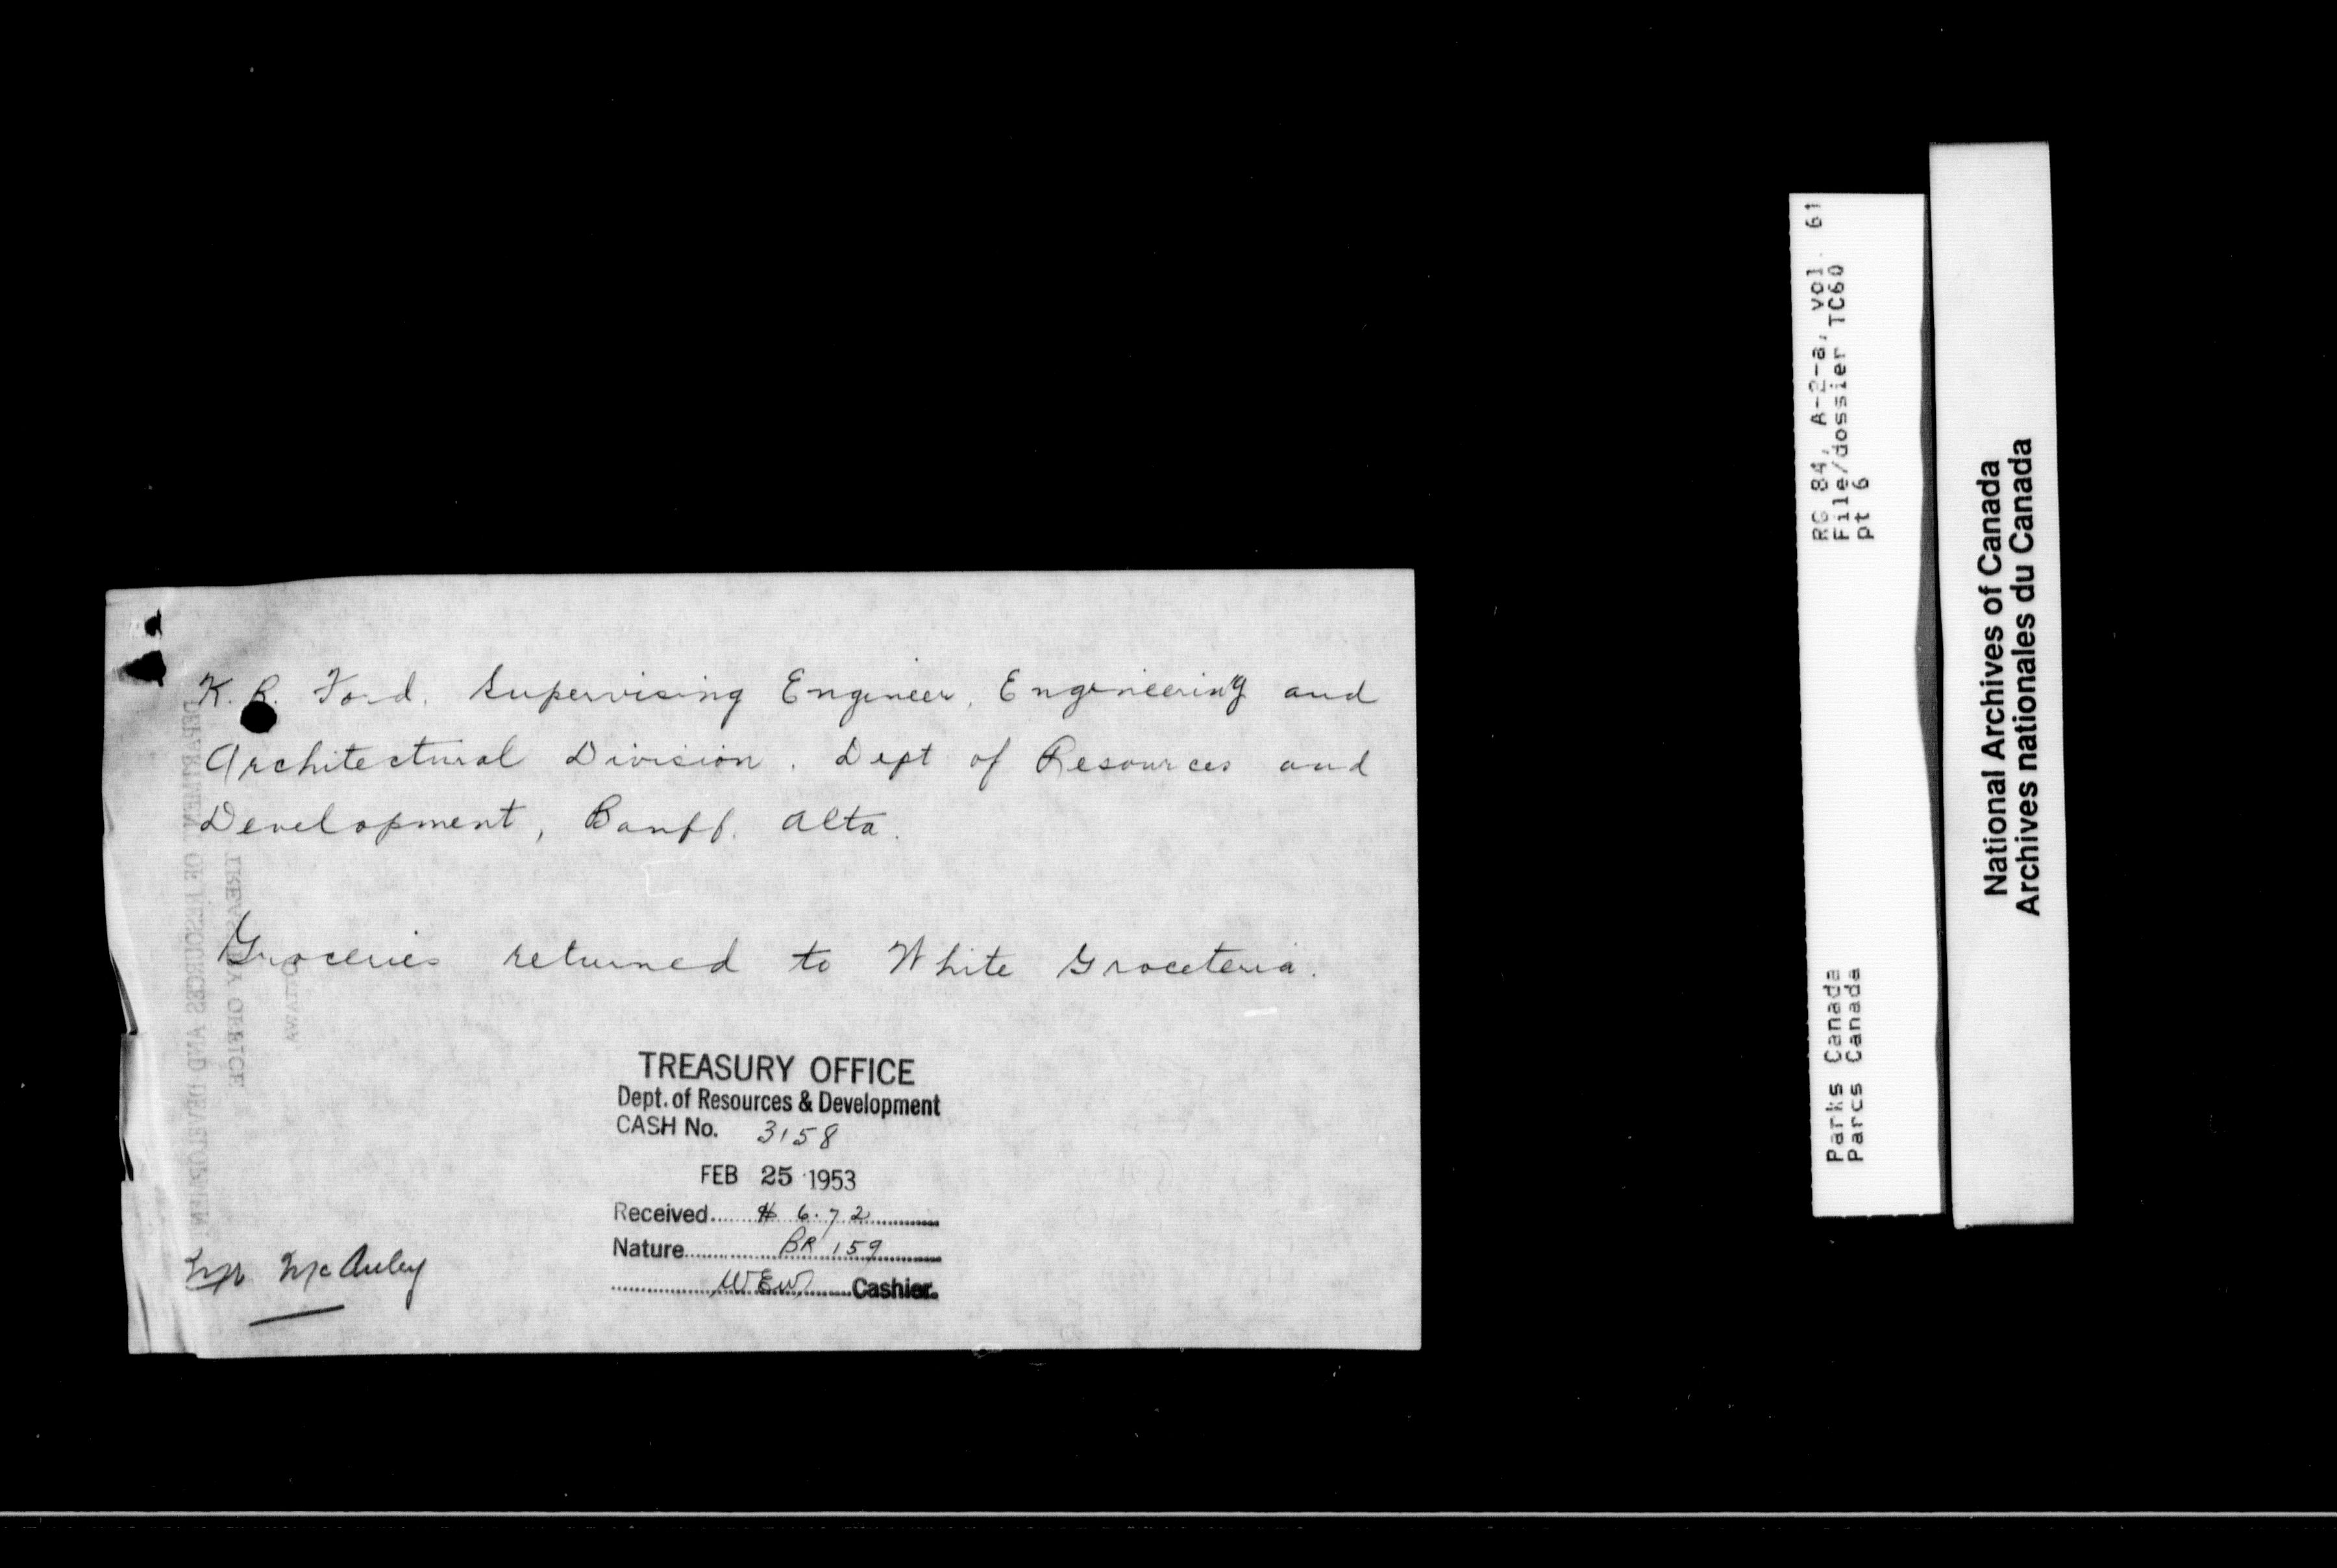 K. B. Ford. Supervising Engineer, Engineering and
Architectural Division. Dept of Resources and
Development, Banff. Alta.
Groceries returned to White Groceteria.
TREASURY OFFICE
Dept. of Resources & Development
CASH No. 3158
FEB 25 1953
Received $ 6.72
Nature BR 159
WEW Cashier.
Mr. McAuley
DEPARTMENT OF RESOURCES AND DEVELOPMENT
TREASURY OFFICE
OTTAWA
RG 84, A-2-a, vol. 61
File/dossier TC60
pt 6
Parks Canada
Parcs Canada
National Archives of Canada
Archives nationales du Canada